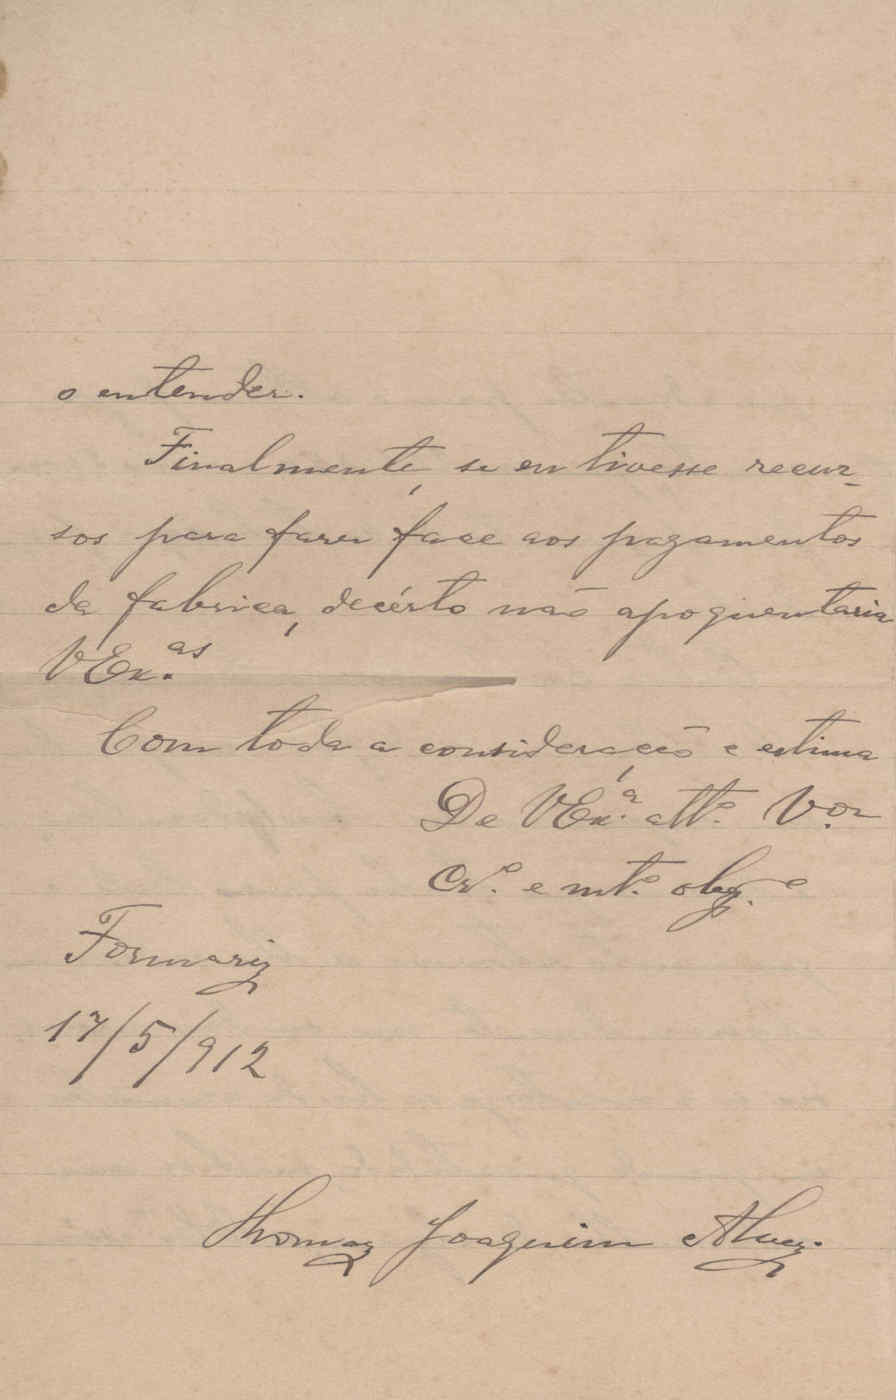 o entender.
Finalmente, se eu tivesse recur-
sos para fazer face aos pagamentos
da fabrica, decérto não apoquentaria
VEx.as
Com toda a consideração e estima
De VEx.a att.o V.or
Cr.o e mt.o obg.o
Formariz
17/5/912
Thomaz Joaquim Alvez.